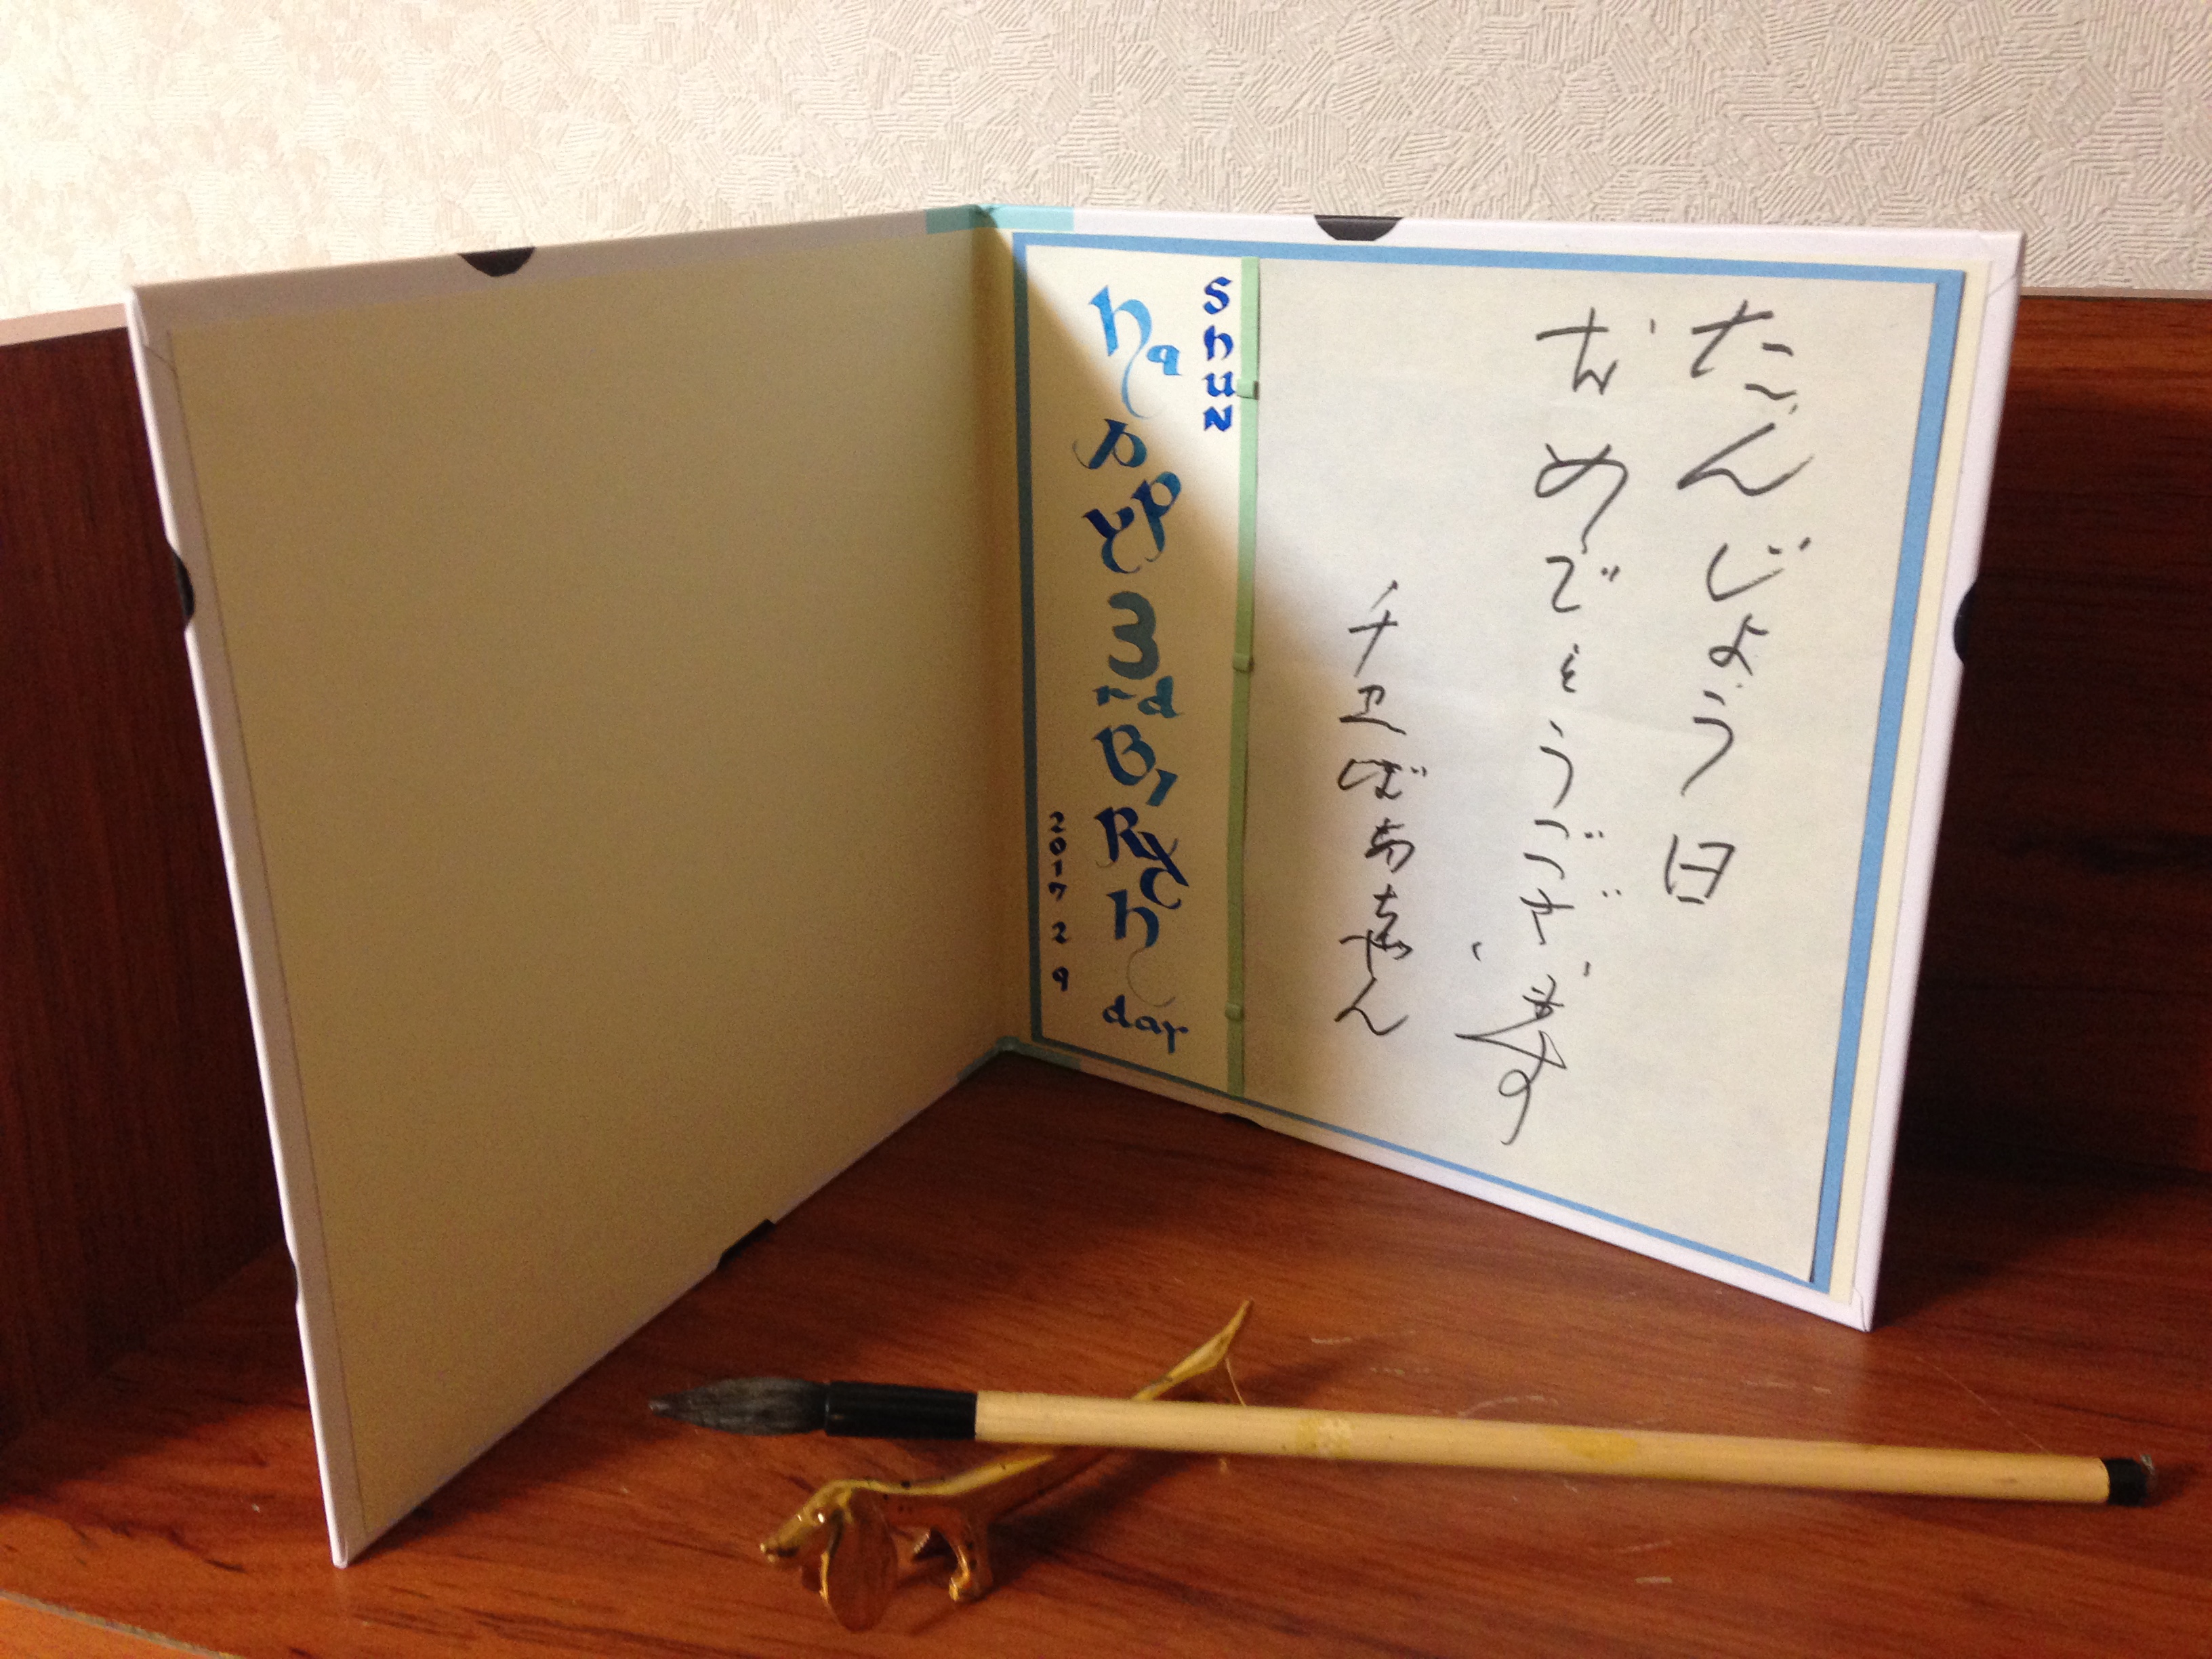 たんじょう日
おめでとうございます
チヱばあちゃん
ShuN
happy 3rd BiRth day
2017 2 9